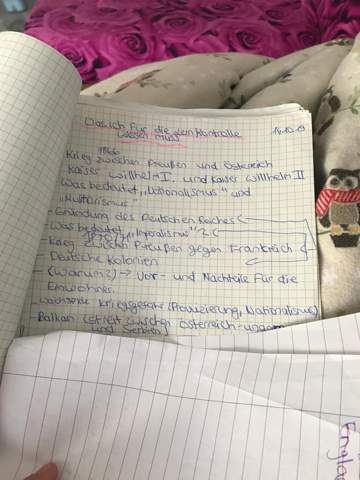 Was ich für die Lernkontrolle 14.10.19
wissen muss
1866
Krieg zwischen Preußen und Österreich
Kaiser Willhelm I. und Kaiser Willhelm II
Was bedeutet „Nationalismus" und
„Militarismus"
- Gründung des Deutschen Reiches
- Was bedeutet „Imperialismus"?
1870/71
- Krieg zwischen Preußen gegen Frankreich
- Deutsche Kolonien
- (Warum?) → Vor- und Nachteile für die
Einwohner
- wachsende Kriegsgefahr (Nationalismus)
- Balkan (streit zwischen Österreich-ungarn
und Serbien)
Engla